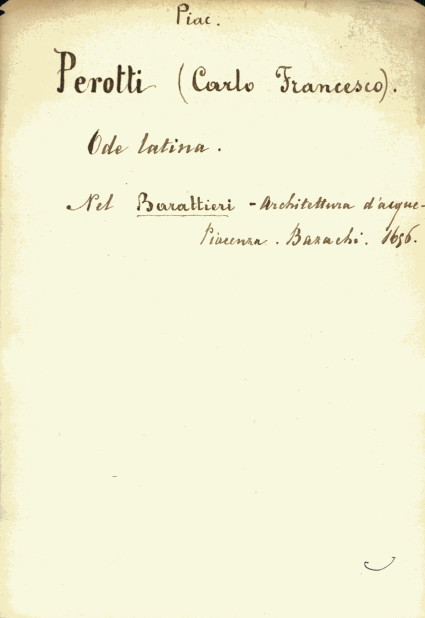 Piac.
Perotti (Carlo Francesco).
Ode latina.
Nel Barattieri - Architettura d'acque -
Piacenza. Bazachi. 1656.